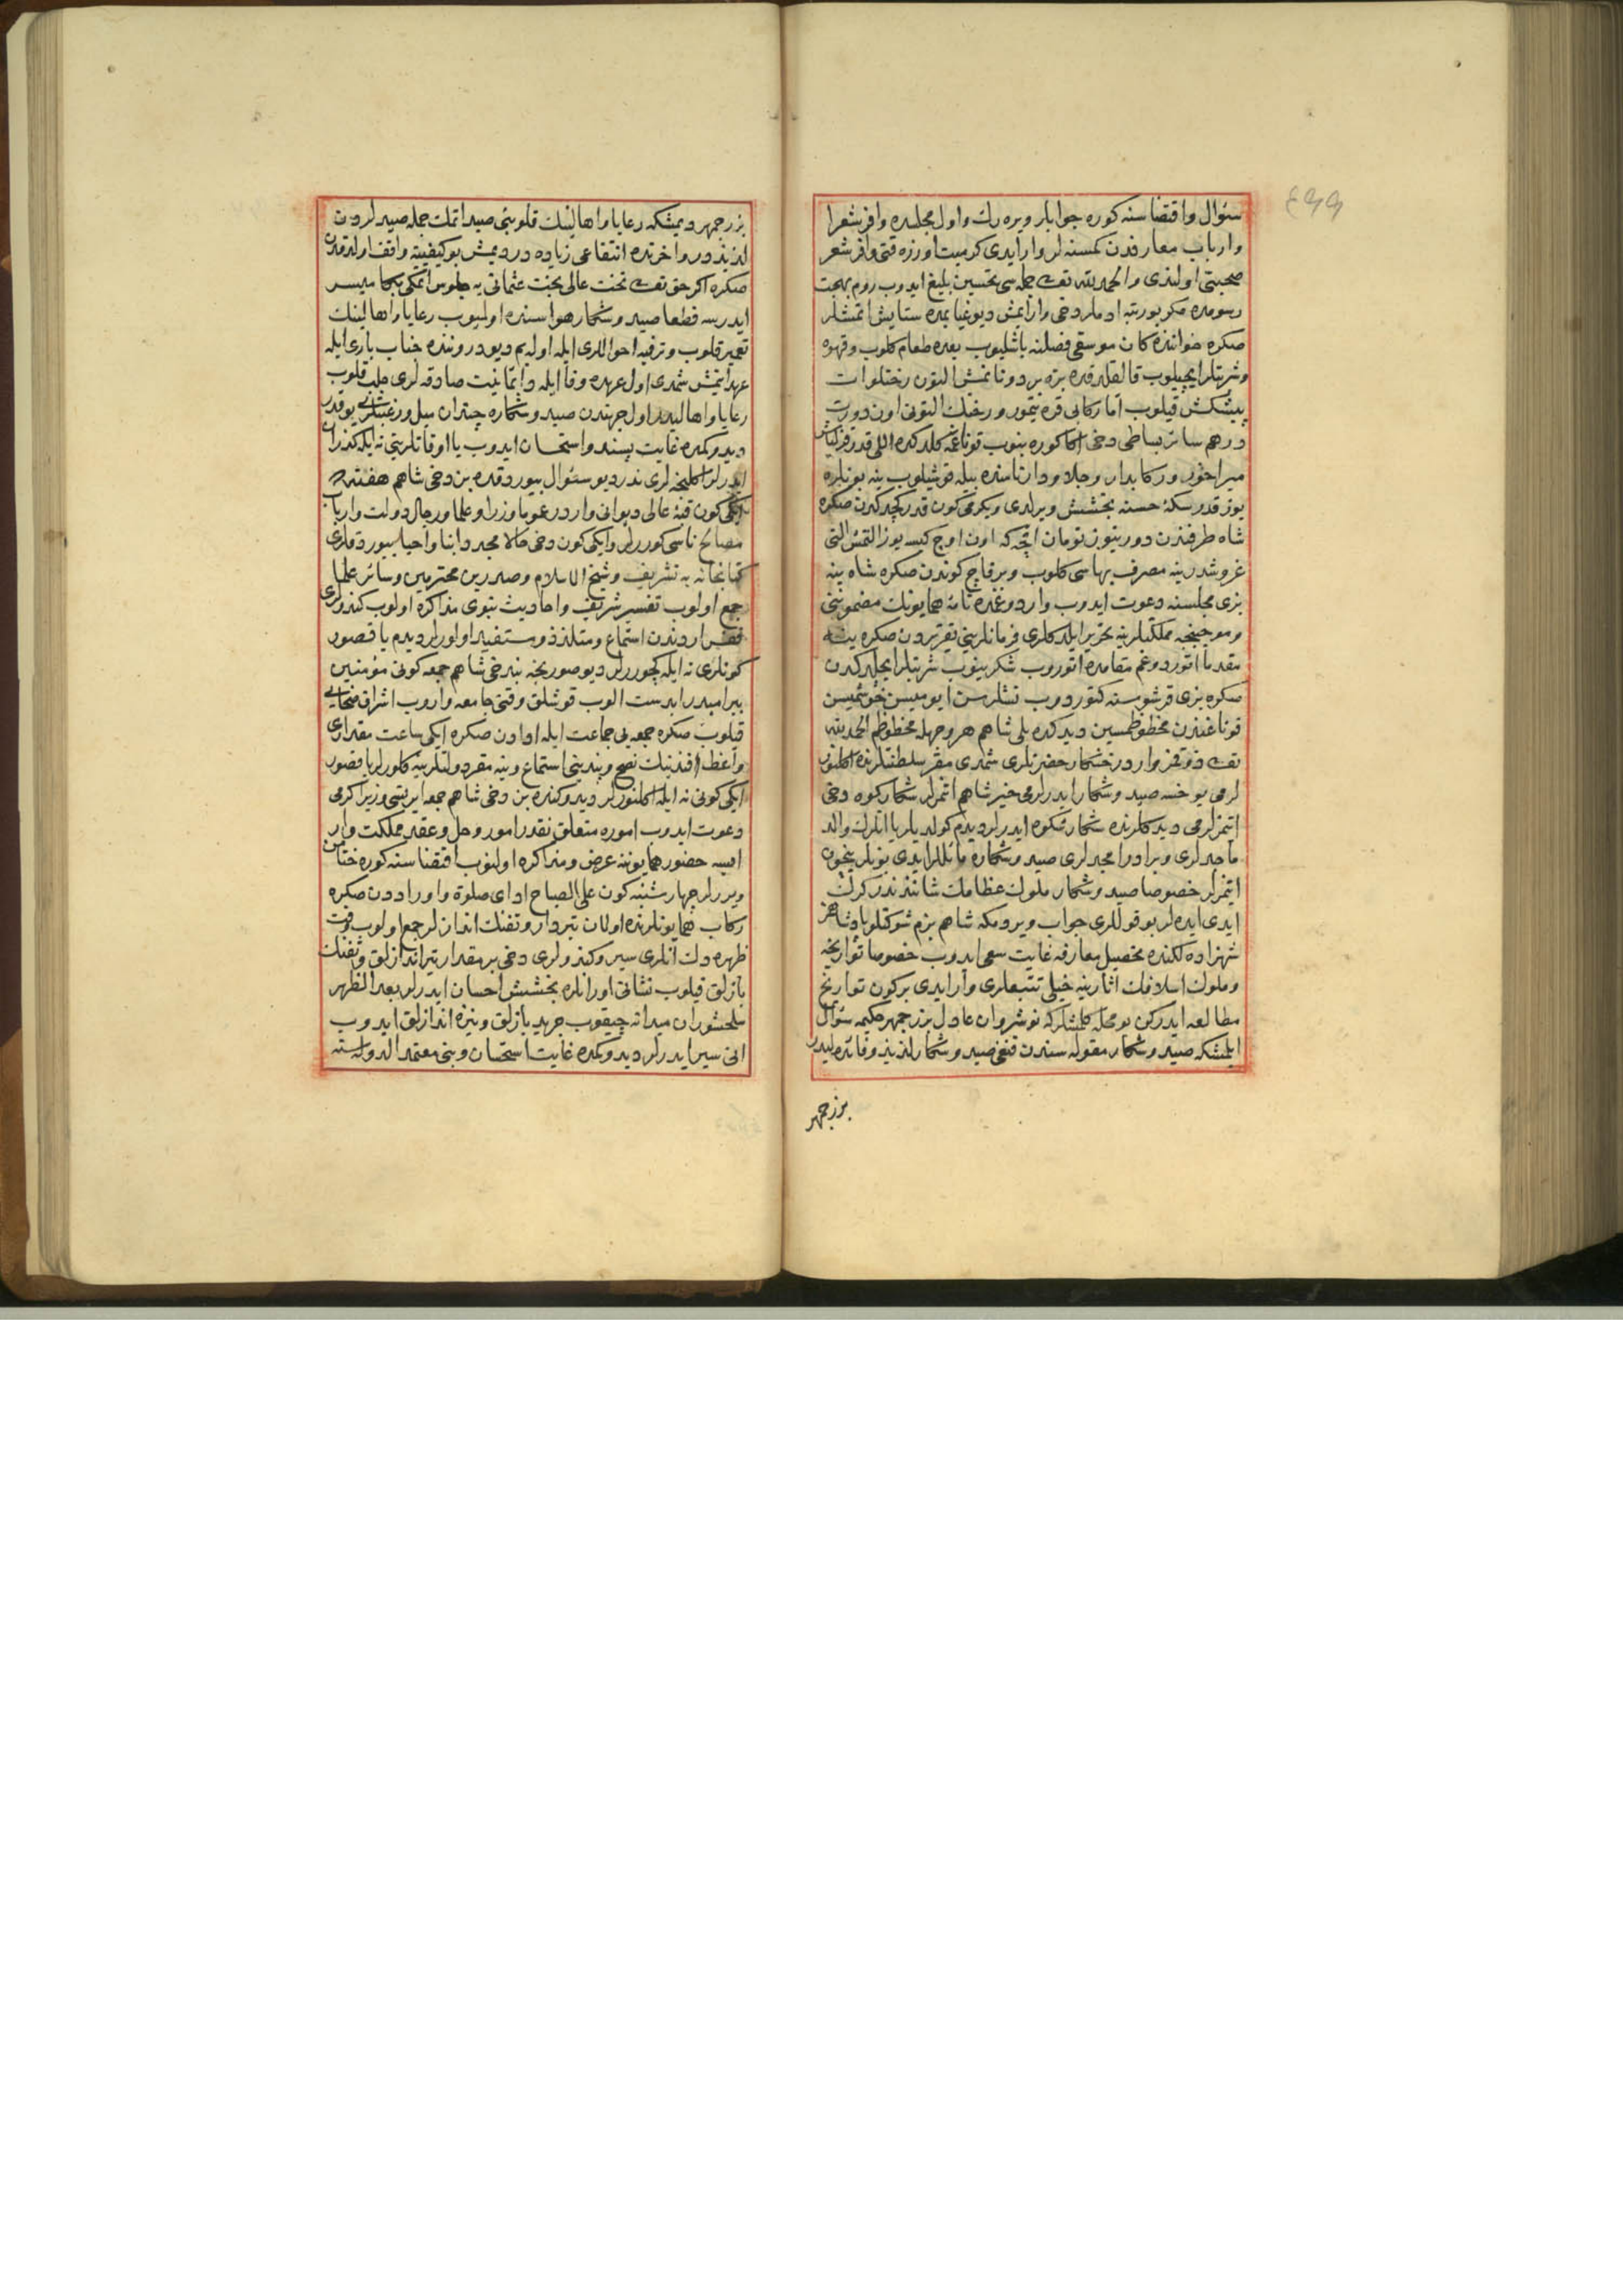 ٤٩٩
سئوال و اقتضاسنه كوره جوابلر ويره رك و اول مجلسده وافر شعرا
و ارباب معارفدن كمسنه لر وار ايدى كرميت اوزره قتى وافر شعر
صحبتى اولندى والحمد لله تعالى جمله سى تحسين بليغ ايدوب روم بهجت
رسومده مكر بو رتبه ادملر دخى وار ايمش ديو غيابمزده ستايش ايتمشلر
صكره خواننده كان موسقى فصلنه باشليوب بعده طعام كلوب و قهوه
و شربتلر ايچيلوب قالقلدقده بزه بر دوناتمش التون رختلو ات
پيشكش قيلوب اما ركابى قره تيمور و رختك التونى اون درت
درهم سائر بساطى دخى اكا كوره بنوب قوناغمزه كلدكده اللى قدر قزلباش
ميراخور و ركابدار و جلاودار تاسنده بيله قوشيلوب ينه بونلره
يوز قدر سكه حسنه بخشش ويرلدى و يكرمى كون قدر كچدكدن صكره
شاه طرفندن دورتيوز تومان اقچه كه اون اوچ كيسه يوز التمش التى
غروشدر ينه مصرف بهاسى كلوب و برقاچ كوندن صكره شاه ينه
بزى مجلسنه دعوت ايدوب واردوغمزده نامه همايونك مضمونى
و موجبنجه مملكتلرينه تحرير ايلدكلرى فرمانلرينى تقريردن صكره ينه
مقدما اتوردوغم مقامده اتوروب شكر ينوب شربتلر ايچلدكدن
صكره بزى قرشوسنه كتوردوب نشلرسن ايوميسن خوشميسن
قوناغندن محظوظميسن ديدكده بلى شاهم هر وجهله محظوظم الحمد لله
تعالى ذوقمز وار در خنكار حضرتلرى شمدى مقر سلطنتلرنده اكلنور
لرمى يوخسه صيد و شكار ايدرلرمى خير شاهم ايتمزلر شكار كوه دخى
ايتمزلرمى ديدكلرنده شكار كوه ايدرلر ديدم كولديلر يا انلرك والد
ماجدلرى و برادر امجدلرى صيد و شكاره مائللر ايدى بونلر نيچون
ايتمزلر خصوصا صيد و شكار ملوك عظامك شانندندر كرك
ايدى ايده لر بو قوللرى جواب ويردمكه شاهم بزم شوكتلو پادشاهمز
شهزاده لكنده تحصيل معارفه غايت سعى ايدوب خصوصا تواريخه
و ملوك اسلافك اثارينه خيلى تتبعلرى وار ايدى بركون تواريخ
مطالعه ايدركن بو محله كلمشلر كه نوشروان عادل بزرجمهر حكيمه سئوال
ايلمشكه صيد و شكار مقوله سندن قنغى صيد و شكار لذيذ و فائده ليدر
بزرجمهر
بزرجمهر ديمشكه رعايا و اهالينك قلوبنى صيد اتمك جمله صيدلردن
لذيذدر و اخرتده انتفاعى زياده در ديمش بو كيفيته واقف اولدقدن
صكره اكر حق تعالى تخت عالى بخت عثمانى يه جلوس اتمكى بكا ميسر
ايدرسه قطعا صيد و شكار هواسنده اولميوب رعايا و اهالينك
تعمير قلوب و ترفيه احواللرى ايله اوله يم ديو دروننده جناب بارى ايله
عهد ايتمش شمدى اول عهده وفا ايله دائما نيت صادقه لرى جلب قلوب
رعايا و اهاليدر اول جهتدن صيد و شكاره چندان ميل و رغبتلرى يوقدر
ديدوكمده غايت پسند و استحسان ايدوب يا اوقاتلرينى نه ايله كذران
ايدرلر اكلنجه لرى ندر ديو سئوال بيوردقده بن دخى شاهم هفته ده
ايكى كون قبه عالى ديوانى واردر عموما وزرا و علما و رجال دولت و ارباب
مصالح ناسى كوررلر و ايكى كون دخى حالا مجددا بنا و احيا بيوردقلرى
كتابخانه يه تشريف و شيخ الاسلام و صدرين محترمين و سائر علما
جمع اولوب تفسير شريف و احاديث نبوى مذاكره اولوب كندولرى
قفس اردندن استماع و متلذذ و مستفيد اولورلر ديدم يا قصور
كونلرى نه ايله كچوررلر ديو صوريجه بنده خى شاهم جمعه كونى مؤمنين
بيرامدر ابدست الوب قوشلق وقتى جامعه واروب اشراق ضحايى
قيلوب صكره جمعه يى جماعت ايله ادادن صكره ايكى ساعت مقدارى
واعظ افندينك نصح و پندينى استماع و ينه مقر دولتلرينه كلورلر يا قصور
ايكى كونى نه ايله اكلنورلر ديدوكنده بن دخى شاهم جمعه ايرتسى وزير اكرمى
دعوت ايدوب اموره متعلق نقدر امور و حل و عقد مملكت وار
ايسه حضور همايوننه عرض و مذاكره اولنوب اقتضاسنه كوره ختامن
ويررلر چهارشنبه كون على الصباح اداى صلوة و اوراددن صكره
ركاب همايونلرنده اولان تيردار و تفنك اندازلر جمع اولوب وقت
ظهره دك انلرى سير و كندولرى دخى بر مقدار تير اندازلق و تفنك
بازلق قيلوب نشانى اورانلره بخشش احسان ايدرلر بعد الظهر
سلحشوران ميدانه چيقوب جريد بازلق و نيزه اندازلق ايدوب
انى سير ايدرلر ديدوكمده غايت استحسان و بنى معتمد الدوله سنه